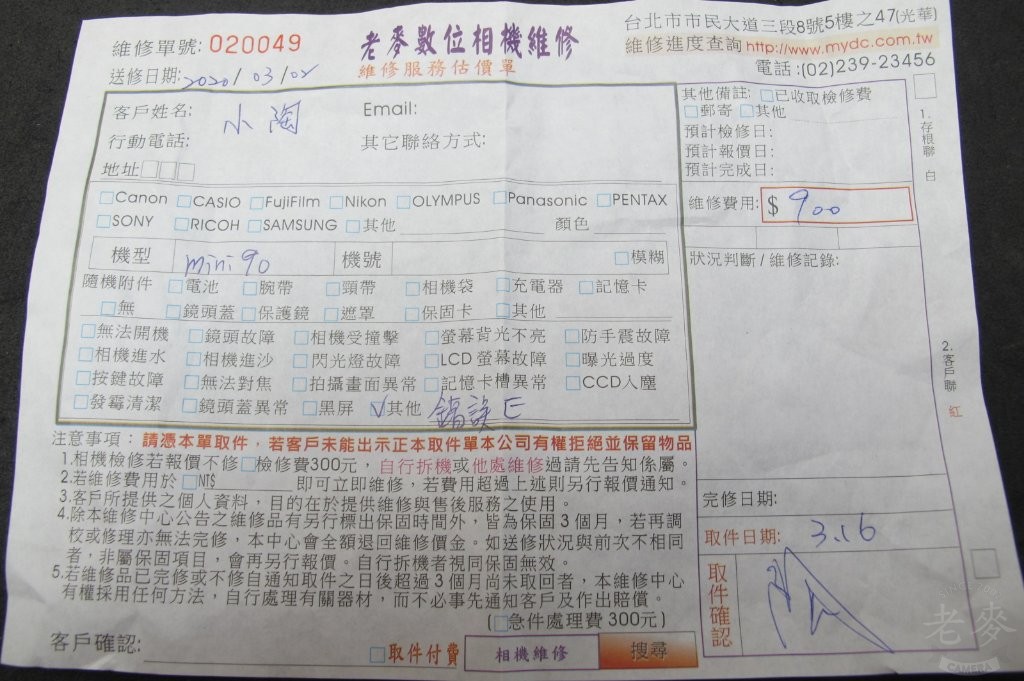 維修單號: 020049
老麥數位相機維修
維修服務估價單
台北市市民大道三段8號5樓之47(光華)
維修進度查詢http://www.mydc.com.tw
電話:(02)239-23456
送修日期: 2020/03/02
客戶姓名: 小陶 Email:
行動電話: 其它聯絡方式:
地址□□□
□Canon □CASIO □FujiFilm □Nikon □OLYMPUS □Panasonic □PENTAX
□SONY □RICOH □SAMSUNG □其他 顏色
機型 mini 90 機號 □模糊
隨機附件 □電池 □腕帶 □頸帶 □相機袋 □充電器 □記憶卡
□無 □鏡頭蓋 □保護鏡 □遮罩 □保固卡 □其他
□無法開機 □鏡頭故障 □相機受撞擊 □螢幕背光不亮 □防手震故障
□相機進水 □相機進沙 □閃光燈故障 □LCD 螢幕故障 □曝光過度
□按鍵故障 □無法對焦 □拍攝畫面異常 □記憶卡槽異常 □CCD入塵
□發霉清潔 □鏡頭蓋異常 □黑屏 ✓其他 錯誤E
其他備註: □已收取檢修費
□郵寄 □其他
預計檢修日:
預計報價日:
預計完成日:
維修費用: $ 900
狀況判斷/維修記錄:
1.存根聯 白
2.客戶聯 紅
注意事項：請憑本單取件，若客戶未能出示正本取件單本公司有權拒絕並保留物品
1.相機檢修若報價不修□檢修費300元，自行拆機或他處維修過請先告知係屬。
2.若維修費用於 □NT$ 即可立即維修，若費用超過上述則另行報價通知。
3.客戶所提供之個人資料，目的在於提供維修與售後服務之使用。
4.除本維修中心公告之維修品有另行標出保固時間外，皆為保固3個月，若再調
校或修理亦無法完修，本中心會全額退回維修價金。如送修狀況與前次不相同
者，非屬保固項目，會再另行報價。自行拆機者視同保固無效。
5.若維修品已完修或不修自通知取件之日後超過3個月尚未取回者，本維修中心
有權採用任何方法，自行處理有關器材，而不必事先通知客戶及作出賠償。
(□急件處理費 300元)
客戶確認: □取件付費 相機維修 搜尋
完修日期:
取件日期: 3.16
取件確認
老麥
CAMERA